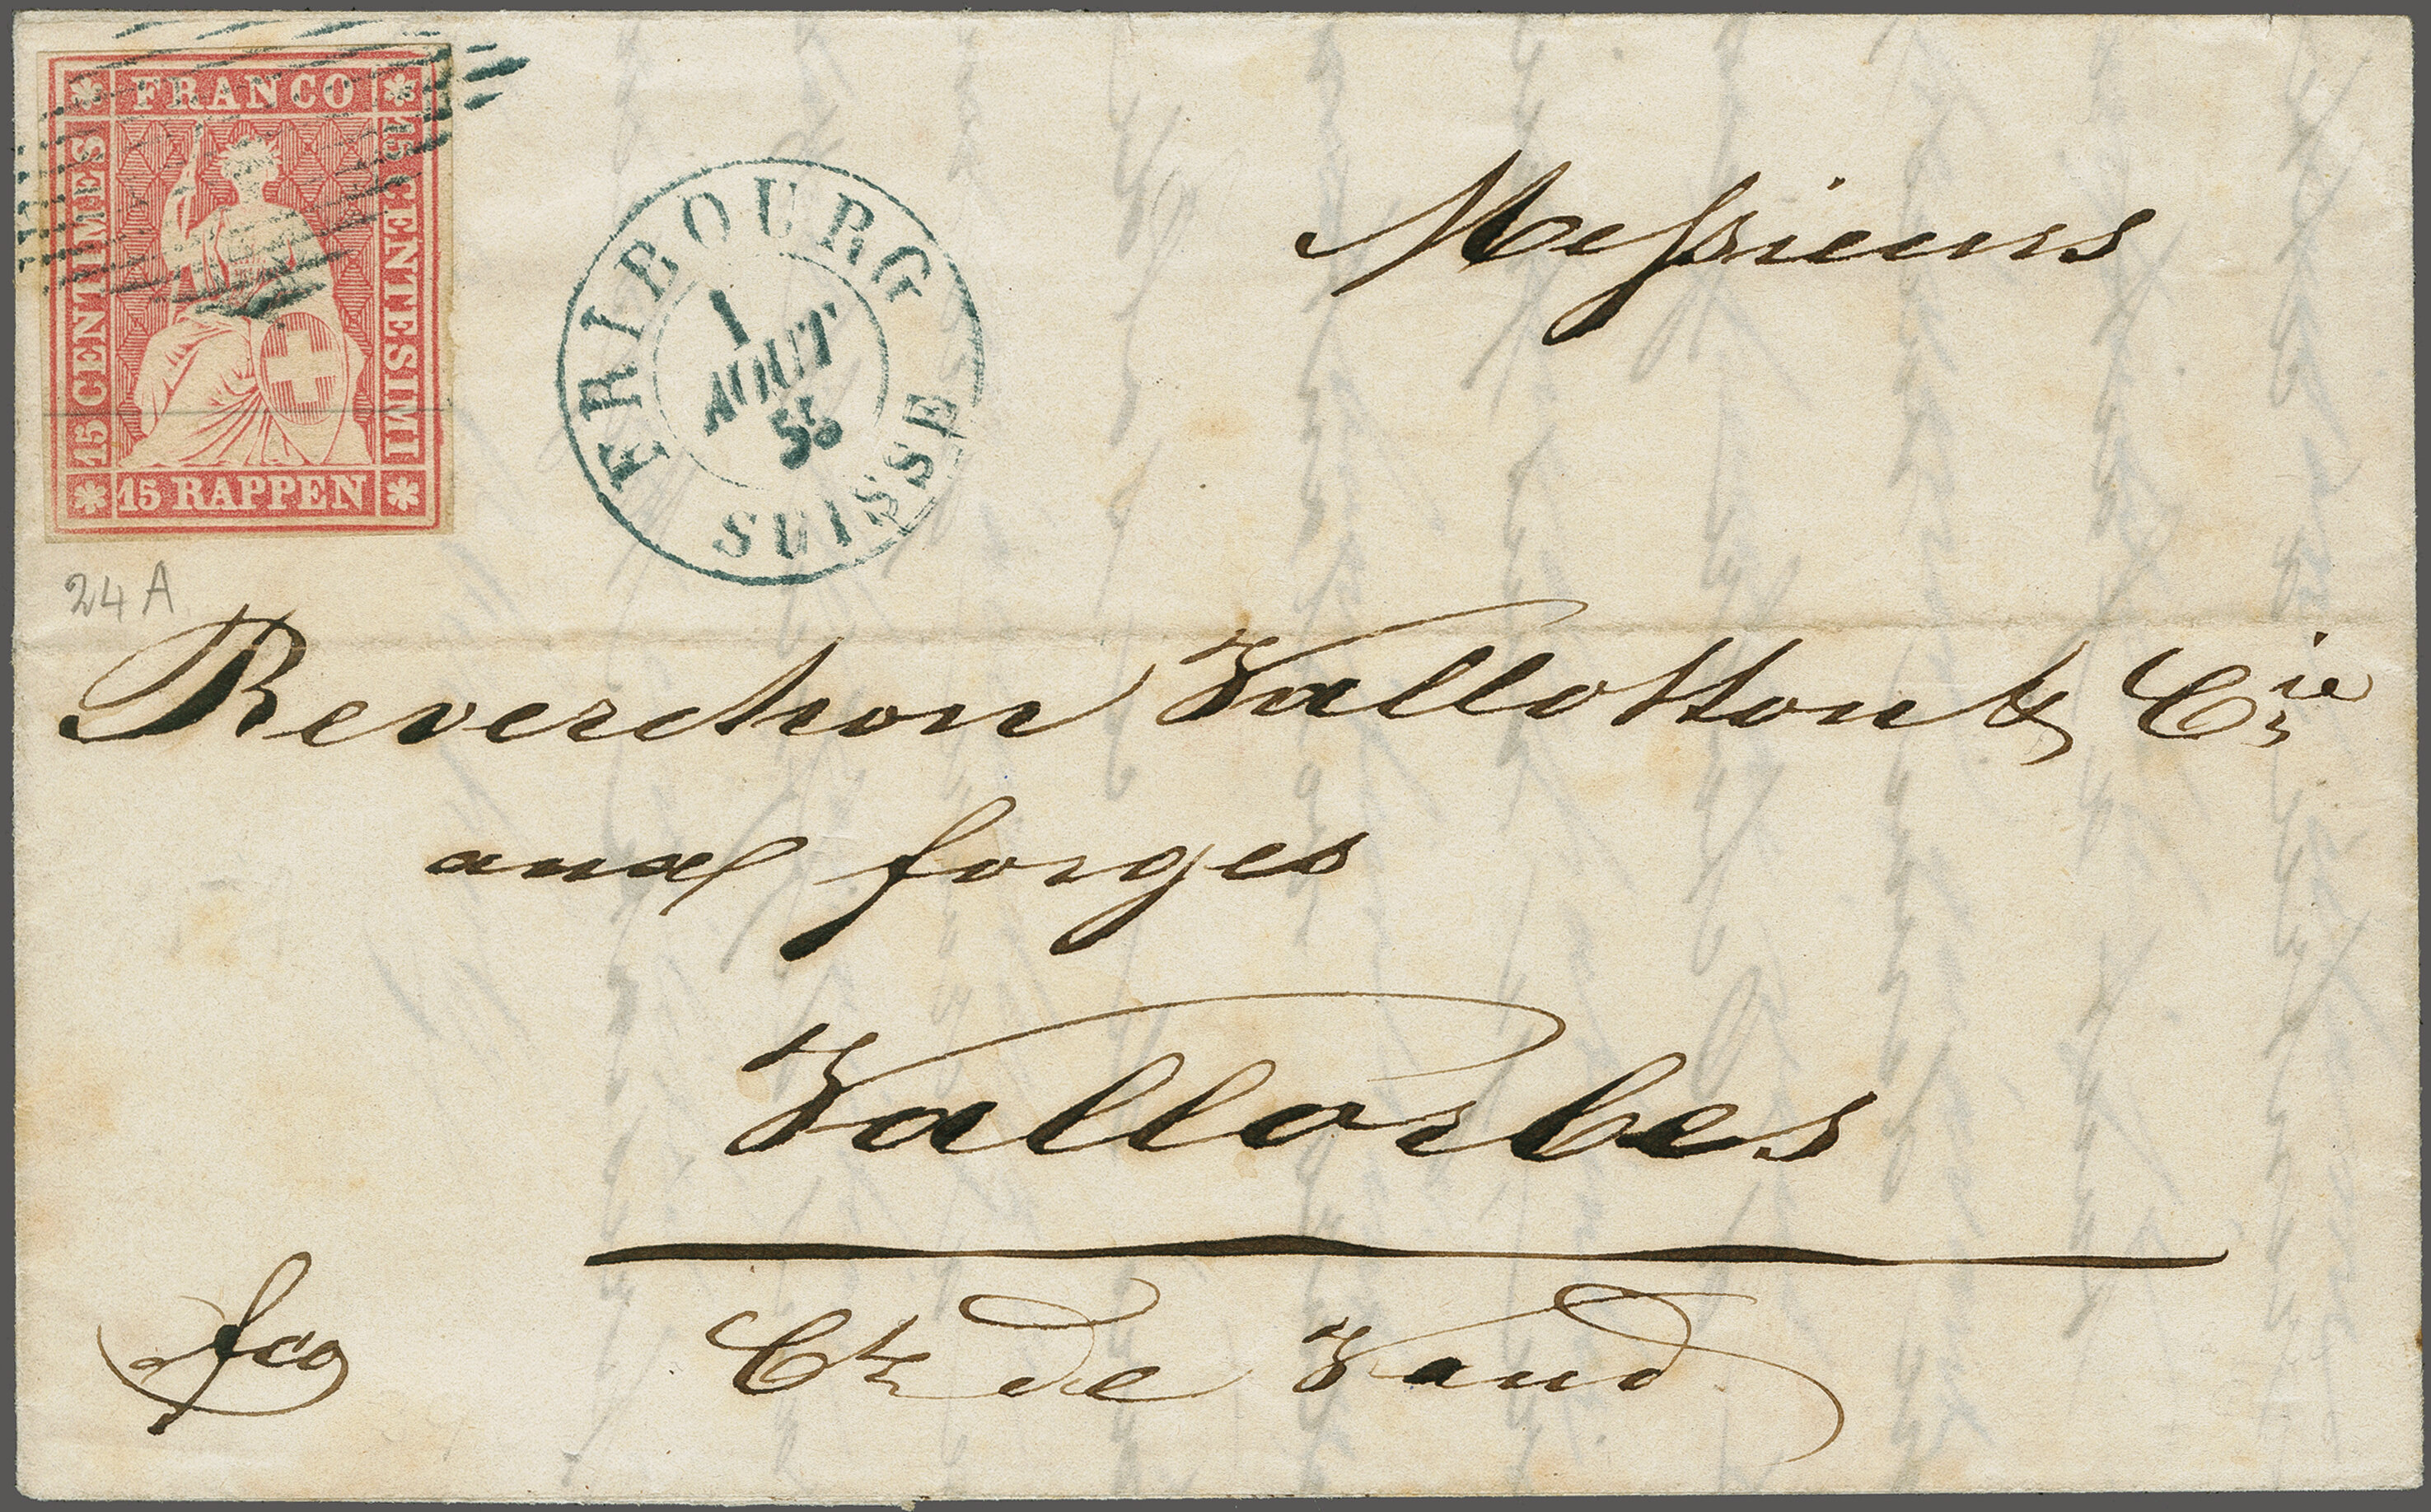 FRANCO
15 CENTIMES
15 CENTESIMI
15 RAPPEN
FRIBOURG
1
AOUT
55
SUISSE
24 A
Messieurs
Reverchon Vallotton & Cie
aux forges
Vallorbes
Ct de Vaud
fco